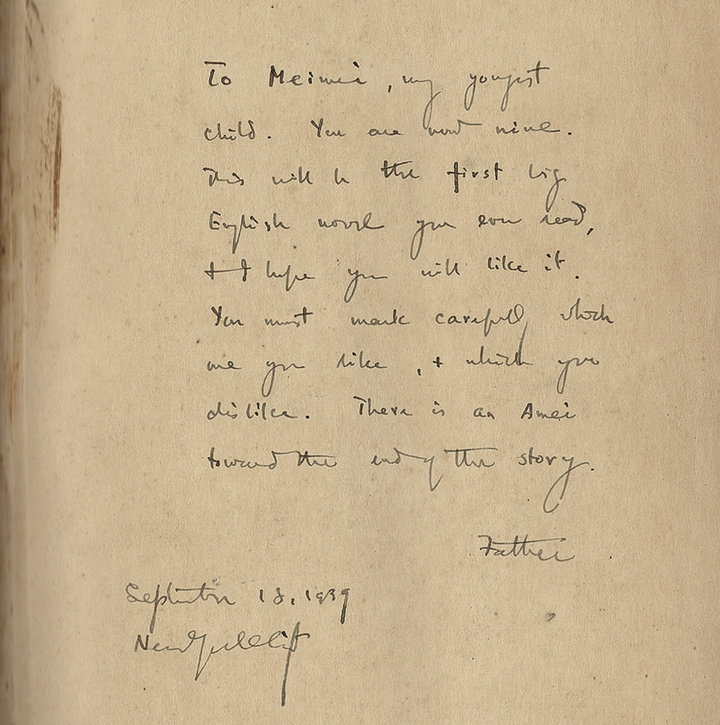 To Meimei, my youngest
child. You are now nine.
This will be the first big
English novel you ever read,
+ I hope you will like it.
You must mark carefully which
one you like, + which you
dislike. There is an Amei
toward the end of the story.
Father
September 18, 1939